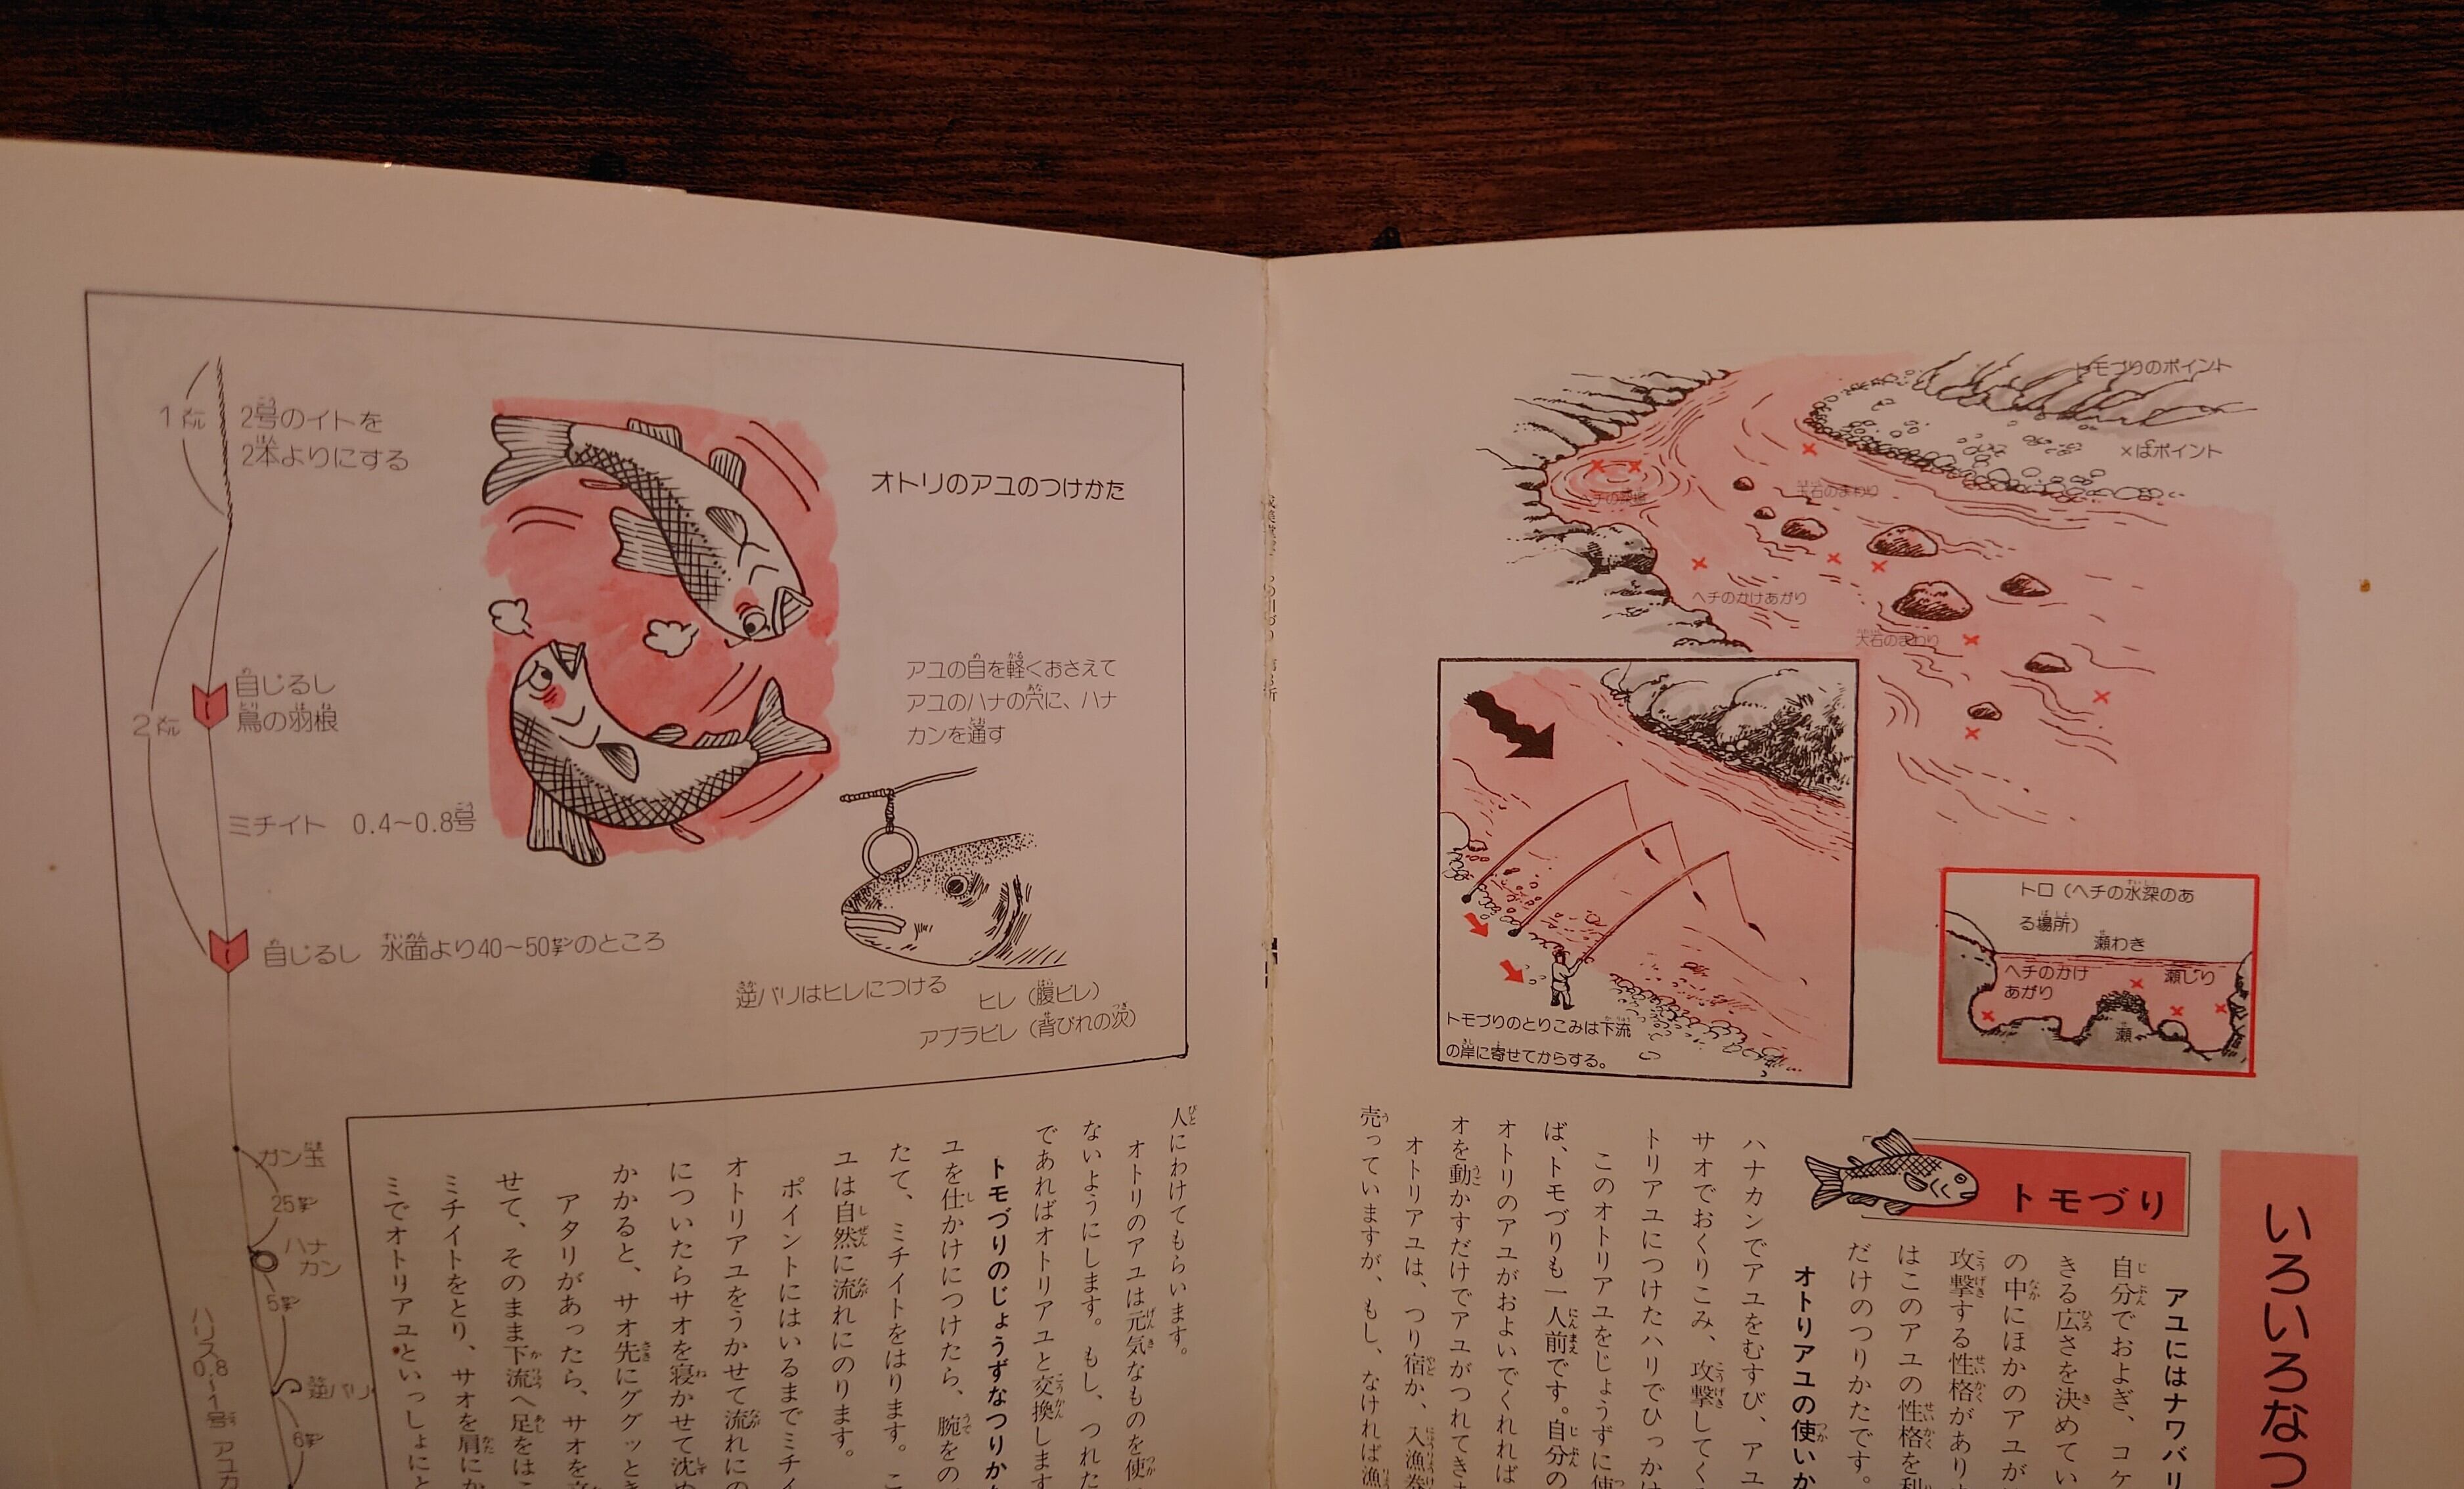 トモづりのポイント
×はポイント
玉石のまわり
ヘチのかけあがり
大石のまわり
トロ（ヘチの水深のあ
る場所）
瀬わき
ヘチのかけ
あがり
瀬じり
瀬
トモづりのとりこみは下流
の岸に寄せてからする。
いろいろなつ
トモづり
アユにはナワバリ
自分でおよぎ、コケ
きる広さを決めてい
の中にほかのアユが
攻撃する性格があり
はこのアユの性格を利
だけのつりかたです。
オトリアユの使いか
ハナカンでアユをむすび、アユ
サオでおくりこみ、攻撃してく
トリアユにつけたハリでひっかけ
このオトリアユをじょうずに使
ば、トモづりも一人前です。自分の
オトリのアユがおよいでくれれば
オを動かすだけでアユがつれてきま
オトリアユは、つり宿か、入漁券
売っていますが、もし、なければ漁
オトリのアユのつけかた
アユの目を軽くおさえて
アユのハナの穴に、ハナ
カンを通す
逆バリはヒレにつける
ヒレ（腹ビレ）
アブラビレ（背びれの次）
1メートル
2号のイトを
2本よりにする
目じるし
鳥の羽根
2メートル
ミチイト 0.4〜0.8号
目じるし 水面より40〜50センチのところ
ガン玉
25センチ
ハナ
カン
5センチ
逆バリ
6センチ
ハリス0.8〜1号 アユカ
人にわけてもらいます。
オトリのアユは元気なものを使
ないようにします。もし、つれた
であればオトリアユと交換します
トモづりのじょうずなつりか
ユを仕かけにつけたら、腕をの
たて、ミチイトをはります。こ
ユは自然に流れにのります。
ポイントにはいるまでミチイ
オトリアユをうかせて流れにの
についたらサオを寝かせて沈め
かかると、サオ先にググッとき
アタリがあったら、サオを立
せて、そのまま下流へ足をはこ
ミチイトをとり、サオを肩にか
ミでオトリアユといっしょにと